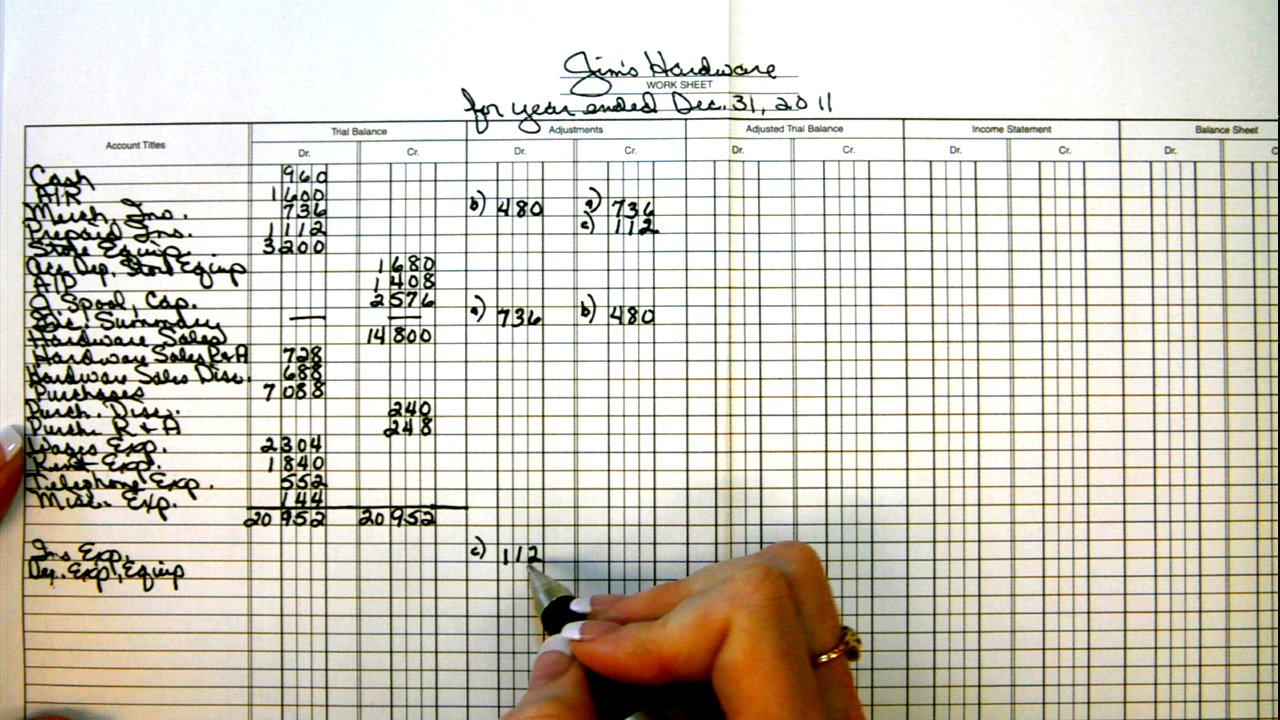 Jim's Hardware
WORK SHEET
for year ended Dec. 31, 2011
Account Titles Trial Balance Adjustments Adjusted Trial Balance Income Statement Balance Sheet
Dr. Cr. Dr. Cr. Dr. Cr. Dr. Cr. Dr. C
Cash 960
A/R 1600
Merch. Inv. 736 b) 480 a) 736
Prepaid Ins. 1112 c) 112
Store Equip. 3200
Acc. Dep. Store Equip 1680
A/P 1408
J. Spool, Cap. 2576
Inc. Summary — — a) 736 b) 480
Hardware Sales 14800
Hardware Sales R&A 728
Hardware Sales Disc. 688
Purchases 7088
Purch. Disc. 240
Purch. R & A 248
Wages Exp. 2304
Rent Exp. 1840
Telephone Exp. 552
Misc. Exp. 144
20952 20952
Ins. Exp. c) 112
Dep. Exp., Equip